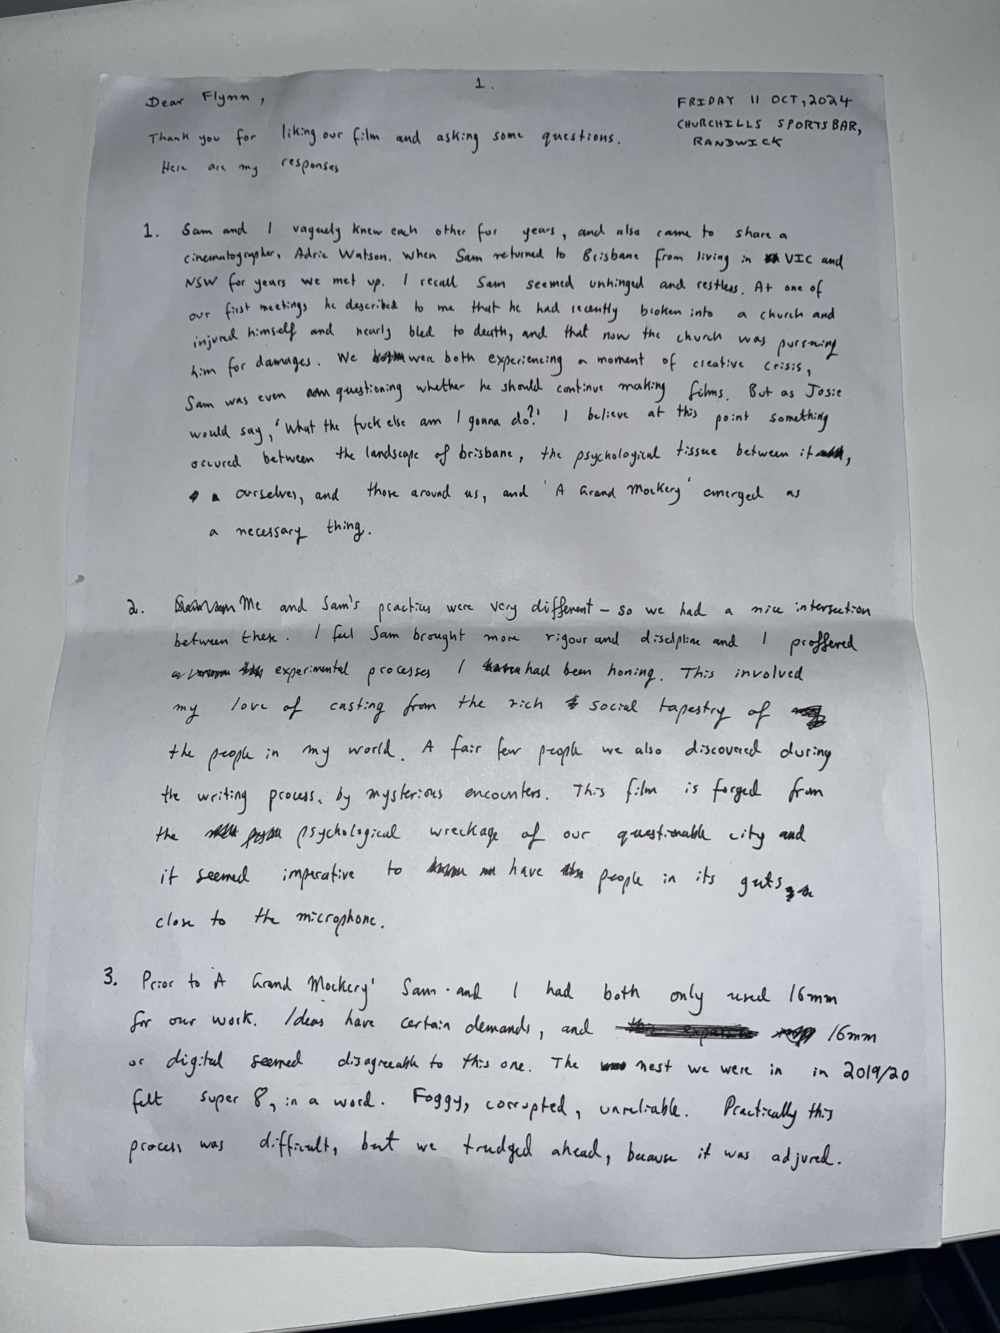 1.
Dear Flynn,
FRIDAY 11 OCT, 2024
CHURCHILLS SPORTS BAR,
RANDWICK
Thank you for liking our film and asking some questions.
Here are my responses
1. Sam and I vaguely knew each other for years, and also came to share a
cinematographer, Adric Watson. When Sam returned to Brisbane from living in VIC and
NSW for years we met up. I recall Sam seemed unhinged and restless. At one of
our first meetings he described to me that he had recently broken into a church and
injured himself and nearly bled to death, and that now the church was pursuing
him for damages. We were both experiencing a moment of creative crisis,
Sam was even questioning whether he should continue making films. But as Josie
would say, 'What the fuck else am I gonna do?' I believe at this point something
occured between the landscape of brisbane, the psychological tissue between it,
ourselves, and those around us, and 'A Grand Mockery' emerged as
a necessary thing.
2. Me and Sam's practices were very different – so we had a nice intersection
between these. I feel Sam brought more rigour and discipline and I proffered
experimental processes I had been honing. This involved
my love of casting from the rich social tapestry of
the people in my world. A fair few people we also discovered during
the writing process, by mysterious encounters. This film is forged from
the psychological wreckage of our questionable city and
it seemed imperative to have people in its guts,
close to the microphone.
3. Prior to 'A Grand Mockery' Sam and I had both only used 16mm
for our work. Ideas have certain demands, and 16mm
or digital seemed disagreeable to this one. The nest we were in in 2019/20
felt super 8, in a word. Foggy, corrupted, unreliable. Practically this
process was difficult, but we trudged ahead, because it was adjured.